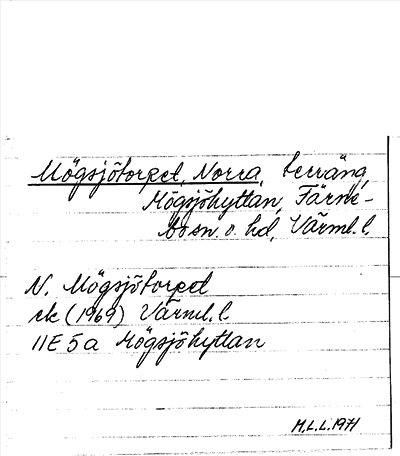 Mögsjötorpet, Norra, terräng,
Mögsjöhyttan, Färne-
bo sn. o. hd, Värml. l.
N. Mögsjötorpet
ek (1969) Värml. l
11E 5a Mögsjöhyttan
M.L.L. 1971